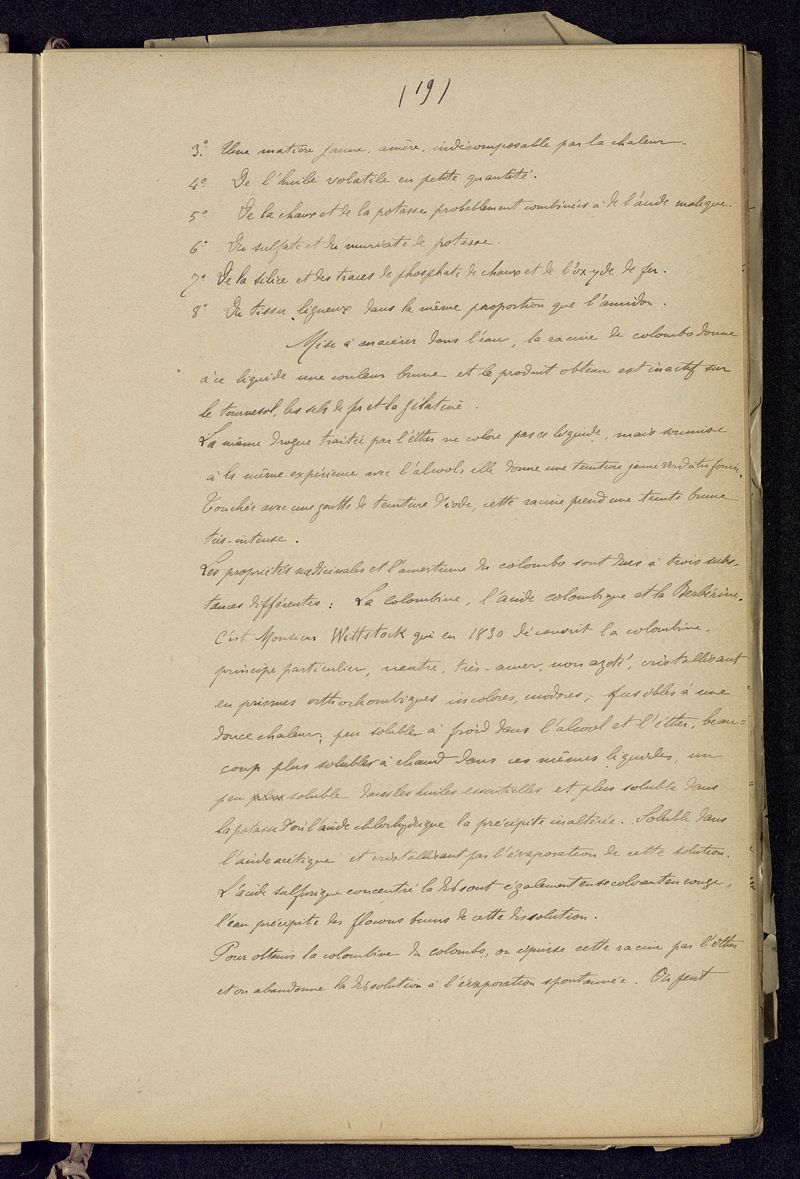 (19)
3.° Une matière jaune, amère, indécomposable par la chaleur.
4° De l'huile volatile en petite quantité.
5° De la chaux et de la potasse probablement combinées à de l'acide malique.
6° Du sulfate et du muriate de potasse.
7° De la silice et des traces de phosphate de chaux et de l'oxyde de fer.
8° Du tissu ligneux dans la même proportion que l'amidon.
Mise à macérer dans l'eau, la racine de colombo donne
à ce liquide une couleur brune et le produit obtenu est inactif sur
le tournesol, les sels de fer et la gélatine.
La même drogue traitée par l'éther ne colore pas ce liquide, mais soumise
à la même expérience avec l'alcool, elle donne une teinture jaune verdâtre foncée.
Touchée avec une goutte de teinture d'iode, cette racine prend une teinte brune
très-intense.
Les propriétés médicinales et l'amertume du colombo sont dues à trois subs-
tances différentes: La colombine, l'acide colombique et la Berbérine.
C'est Monsieur Wittstock qui en 1830 découvrit la colombine,
principe particulier, neutre, très-amer, non azoté, cristallisant
en prismes orthorhombiques, incolores, inodores, fusibles à une
douce chaleur, peu solubles à froid dans l'alcool et l'éther, beau=
coup plus solubles à chaud dans ces mêmes liquides, un
peu soluble dans les huiles essentielles et plus soluble dans
la potasse d'où l'acide chlorhydrique la précipite inaltérée. Soluble dans
l'acide acétique et cristallisant par l'évaporation de cette solution.
L'acide sulfurique concentré la dissout également en se colorant en rouge,
l'eau précipite des flocons bruns de cette dissolution.
Pour obtenir la colombine du colombo, on épuise cette racine par l'éther
et on abandonne la dissolution à l'évaporation spontanée. On peut